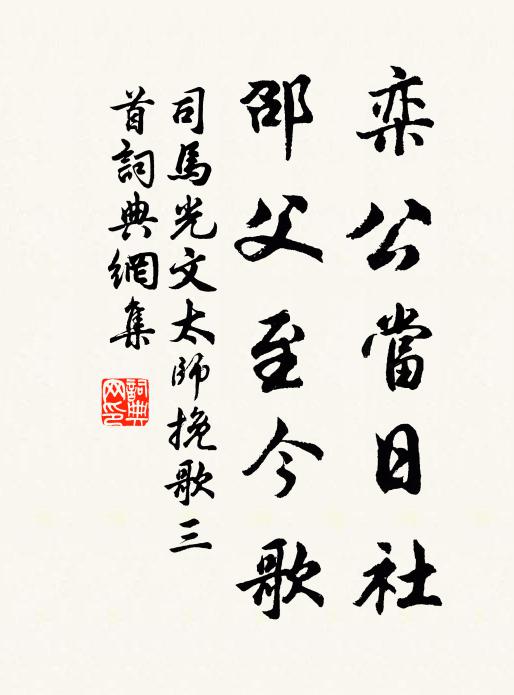 栾公當日社
邵父至今歌
司馬光文太師挽歌三
首詞典網集
詞典
网印